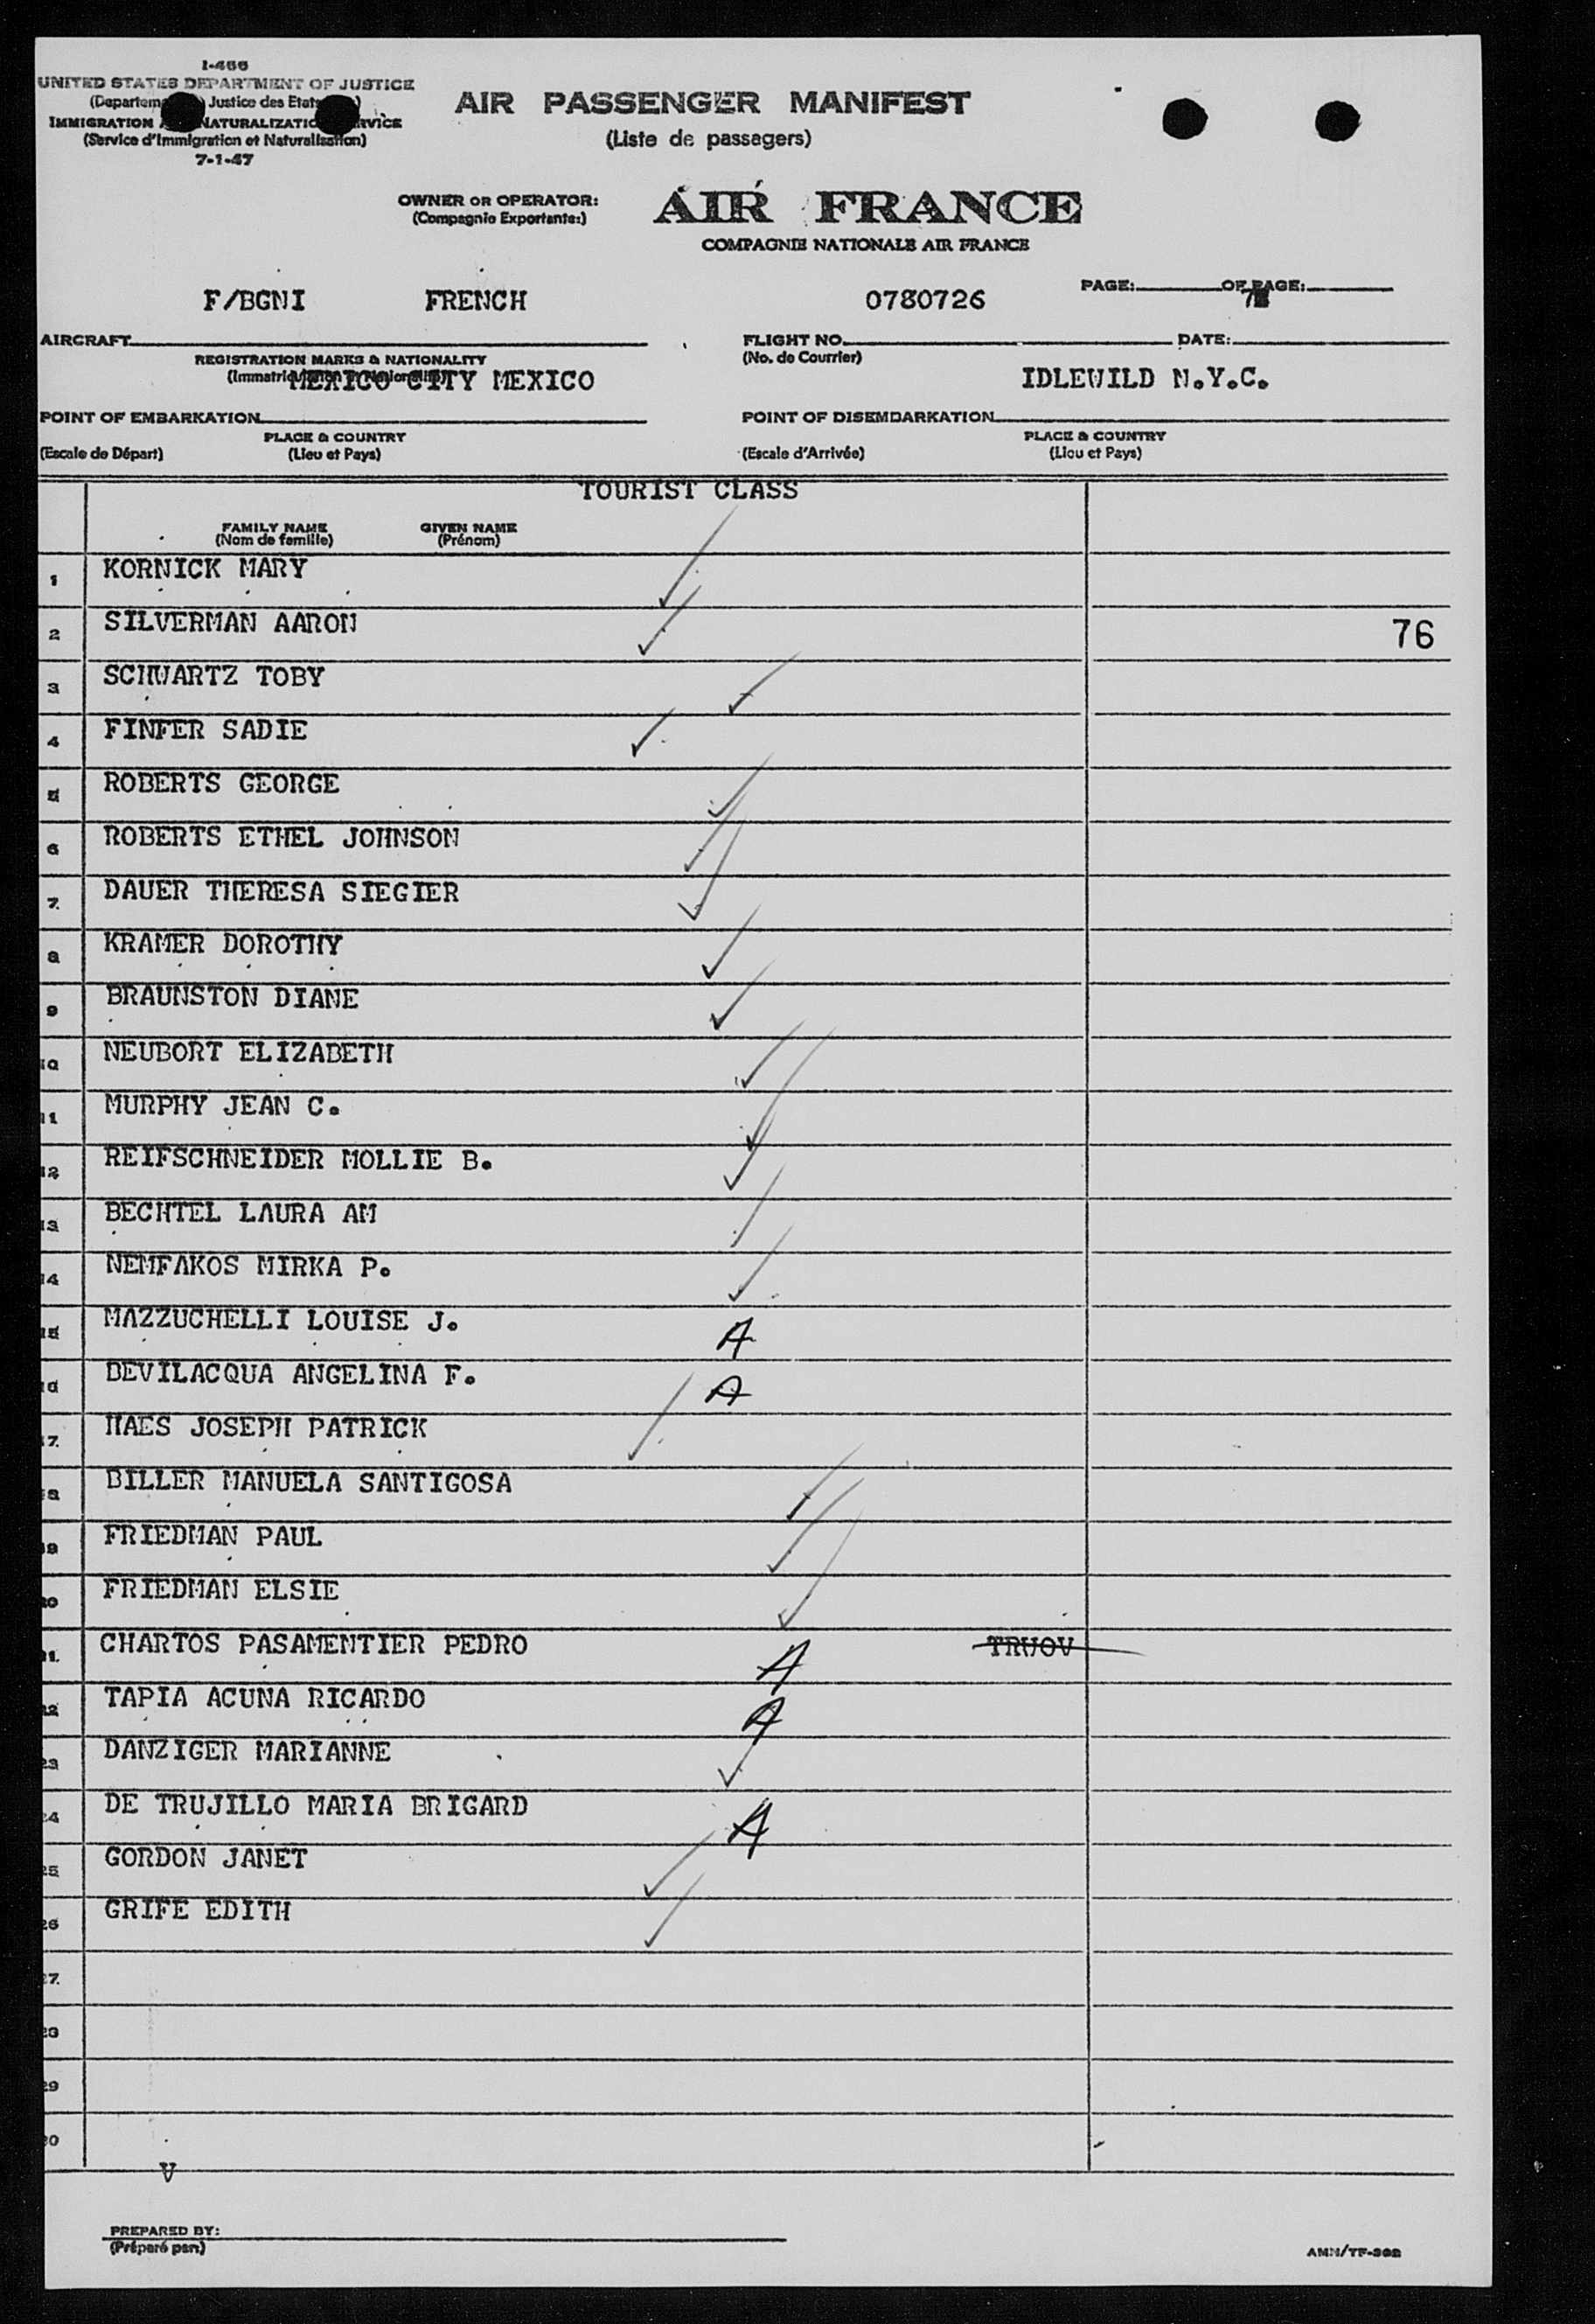 I-466
UNITED STATES DEPARTMENT OF JUSTICE
Justice des Etats
IMMIGRATION NATURALIZATION SERVICE
(Service d'Immigration et Naturalisation)
7-1-47
AIR PASSENGER MANIFEST
(Liste de passagers)
OWNER OR OPERATOR:
(Compagnie Exportante:)
AIR FRANCE
COMPAGNIE NATIONALE AIR FRANCE
PAGE: OF PAGE:
F/BGNI FRENCH 0780726
AIRCRAFT FLIGHT NO. DATE:
REGISTRATION MARKS & NATIONALITY (No. de Courrier)
MEXICO CITY MEXICO IDLEWILD N.Y.C.
POINT OF EMBARKATION POINT OF DISEMBARKATION
PLACE & COUNTRY PLACE & COUNTRY
(Escale de Départ) (Lieu et Pays) (Escale d'Arrivée) (Lieu et Pays)
TOURIST CLASS
FAMILY NAME GIVEN NAME
(Nom de famille) (Prénom)
1 KORNICK MARY
2 SILVERMAN AARON 76
3 SCHWARTZ TOBY
4 FINFER SADIE
5 ROBERTS GEORGE
6 ROBERTS ETHEL JOHNSON
7. DAUER THERESA SIEGIER
8 KRAMER DOROTHY
9 BRAUNSTON DIANE
10 NEUBORT ELIZABETH
11 MURPHY JEAN C.
12 REIFSCHNEIDER MOLLIE B.
13 BECHTEL LAURA AM
14 NEMFAKOS MIRKA P.
15 MAZZUCHELLI LOUISE J. A
16 BEVILACQUA ANGELINA F. A
17. HAES JOSEPH PATRICK
18 BILLER MANUELA SANTIGOSA
19 FRIEDMAN PAUL
20 FRIEDMAN ELSIE
21. CHARTOS PASAMENTIER PEDRO A TRUOV
22 TAPIA ACUNA RICARDO A
23 DANZIGER MARIANNE
24 DE TRUJILLO MARIA BRIGARD A
25 GORDON JANET
26 GRIFE EDITH
27.
28
29
30
V
PREPARED BY:
(Préparé par:)
AMN/TF-302